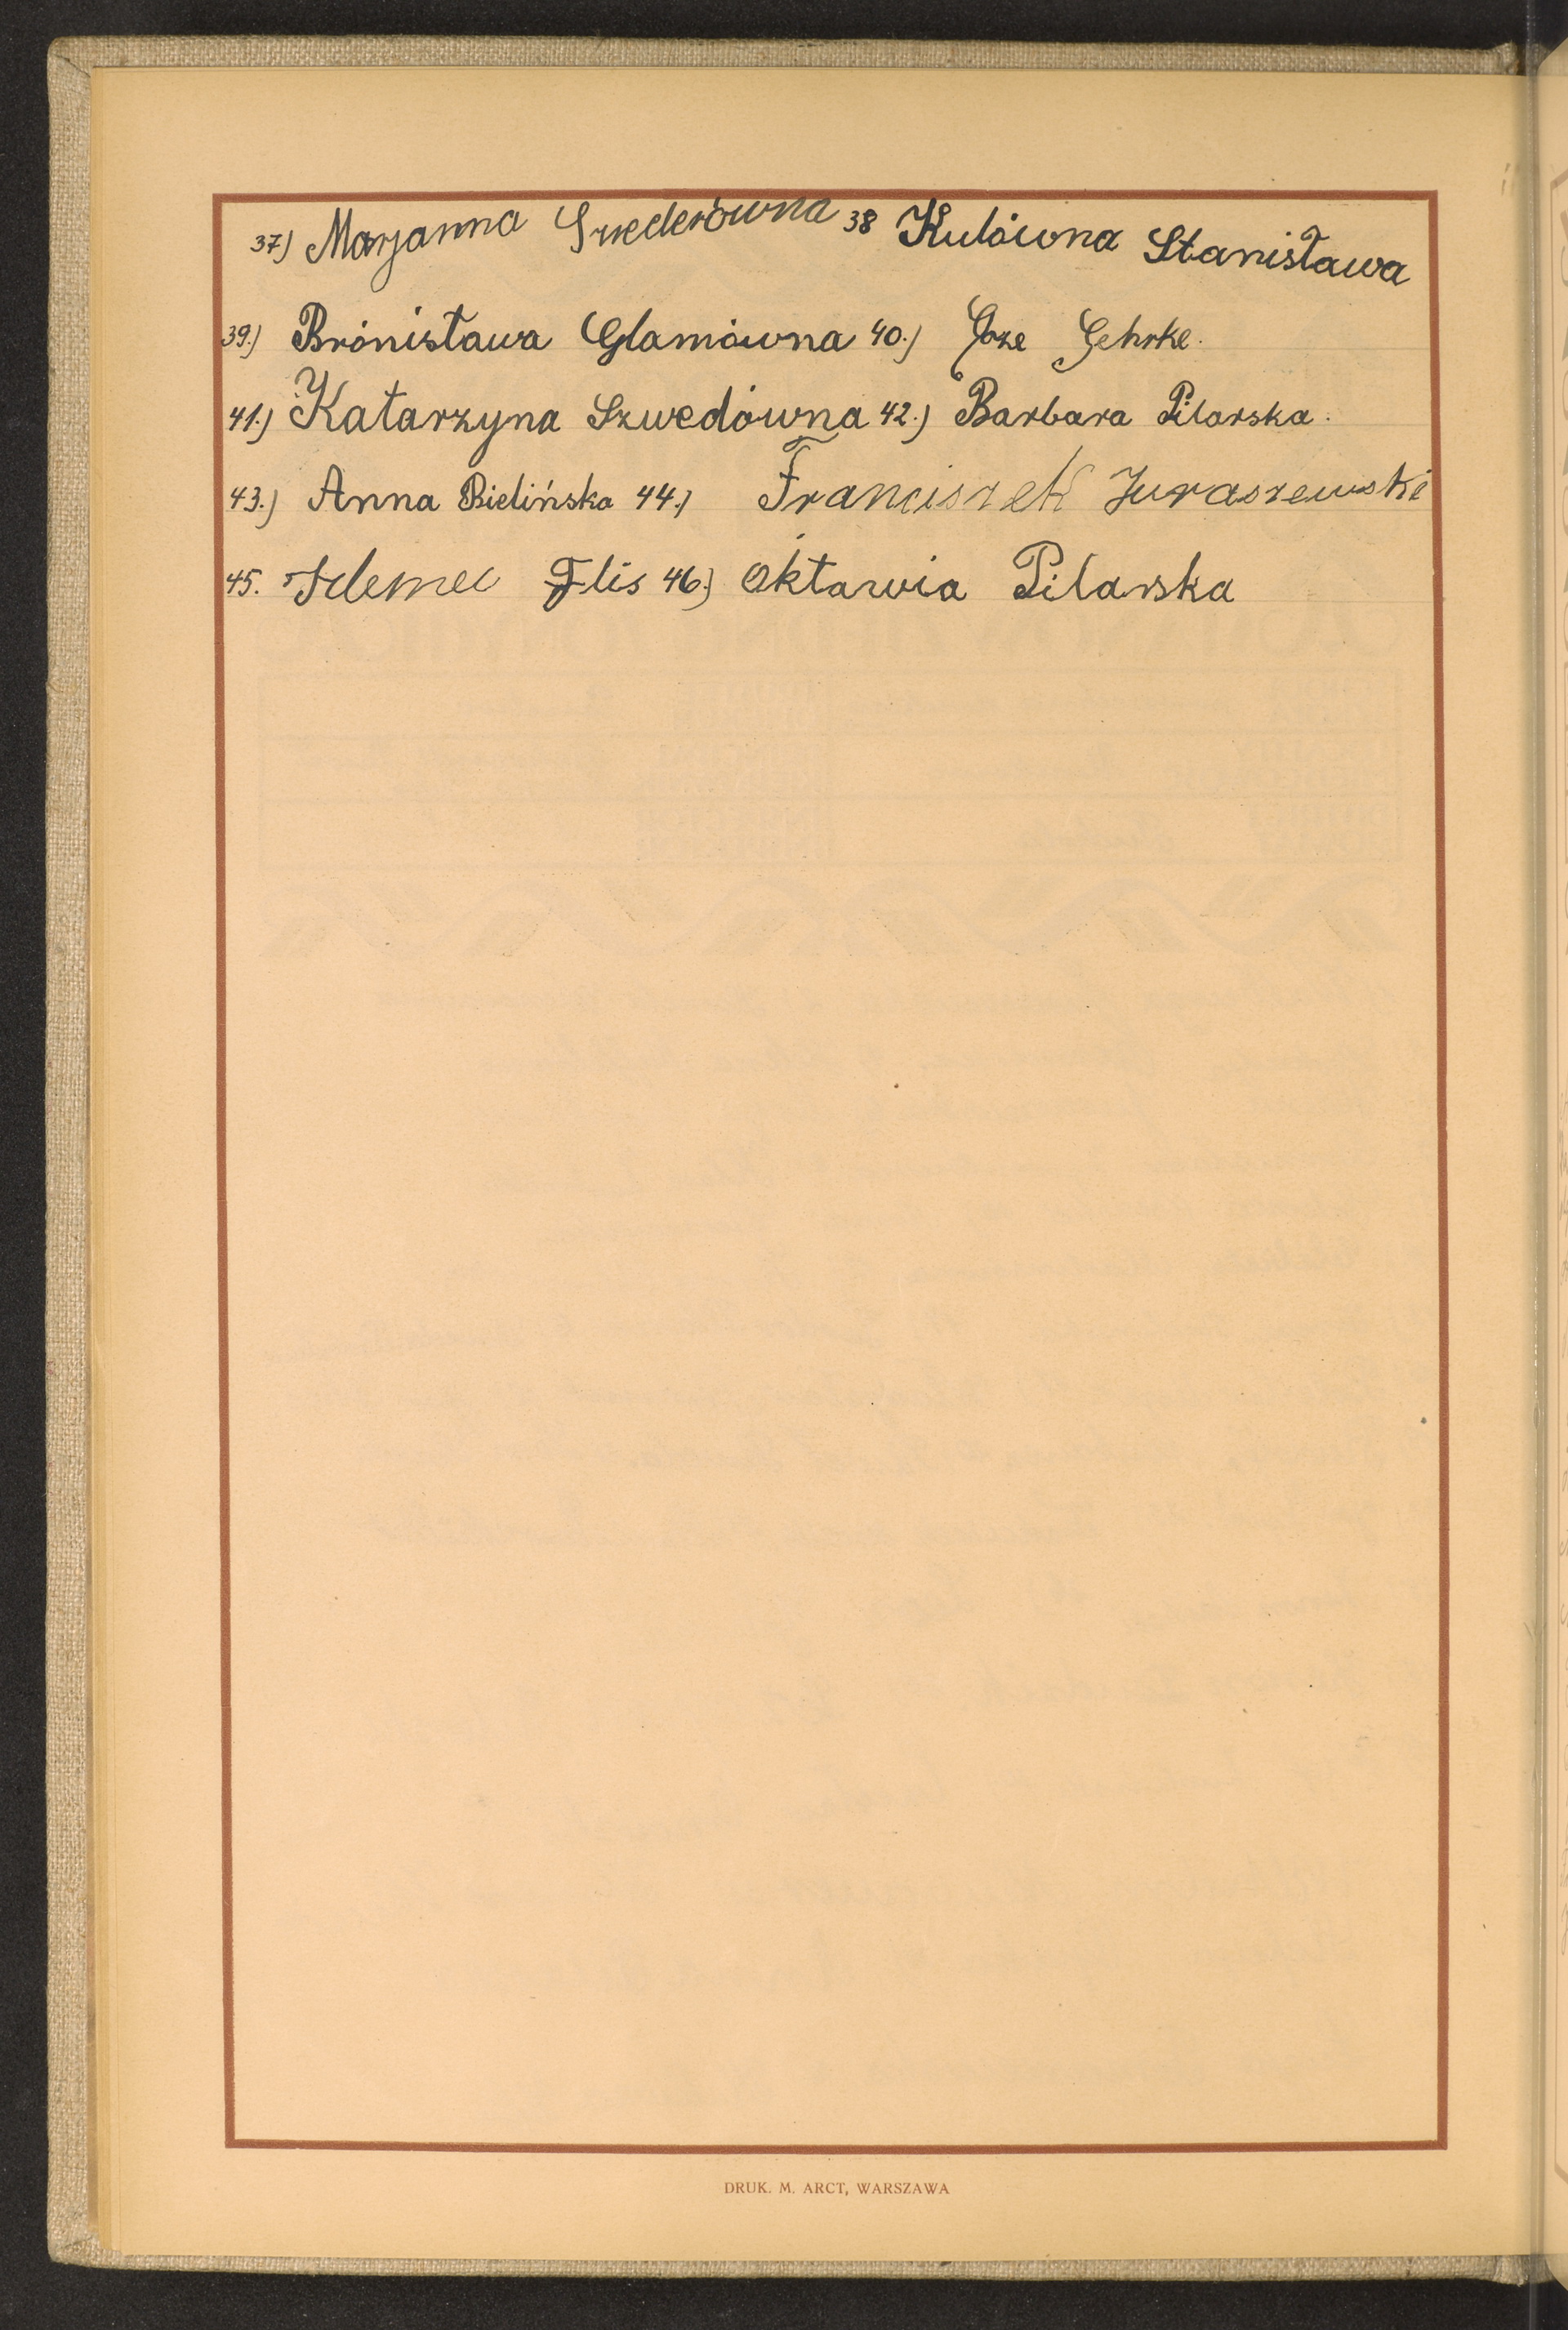 37) Marjanna Szwederówna 38 Kulówna Stanisława
39.) Bronisława Glamówna 40.) Gehrke.
41.) Katarzyna Szwedówna 42.) Barbara Pilarska.
43.) Anna Bielińska 44.) Franciszek Juraszewski
45. Flis 46.) Oktawia Pilarska
DRUK. M. ARCT, WARSZAWA